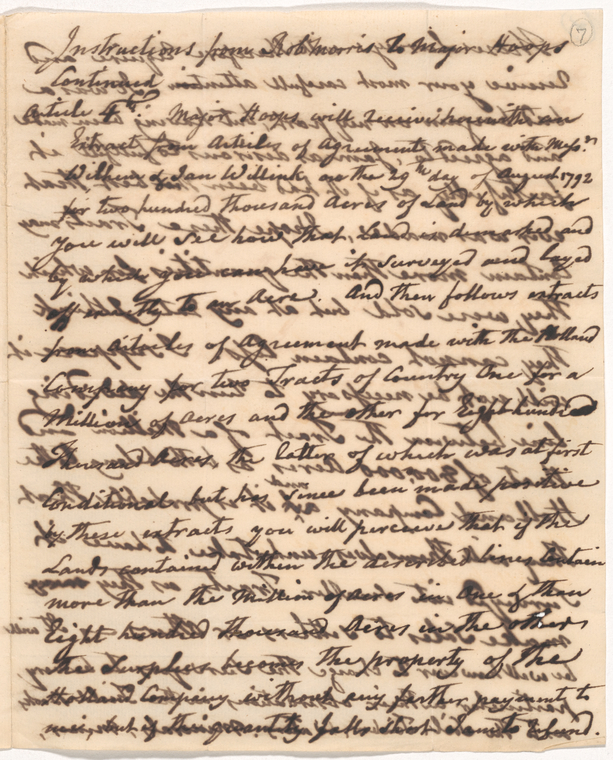 7
Instructions from Rob Morris to Major Hoops
Continued
Article 4th. Major Hoops will receive herewith an
Extract from Articles of Agreement made with Messrs
Wilhem & Jan Willink on the 29th day of August 1792
for two hundred thousand Acres of Land by which
you will see how that Land is demarked and
by which you can have it surveyed and layed
off exactly to an Acre. And then follows extracts
from Articles of Agreement made with the Holland
Company for two Tracts of Country One for a
Million of Acres and the other for Eight hundred
Thousand Acres the latter of which was at first
Conditional but has since been made positive
by these extracts you will perceive that if the
Lands contained within the described lines Contain
more than the Million of Acres in One or than
Eight hundred thousand Acres in the other
the Surplus becomes the property of the
Holland Company without any farther payment to
me, but if the quantity falls short I am to refund.